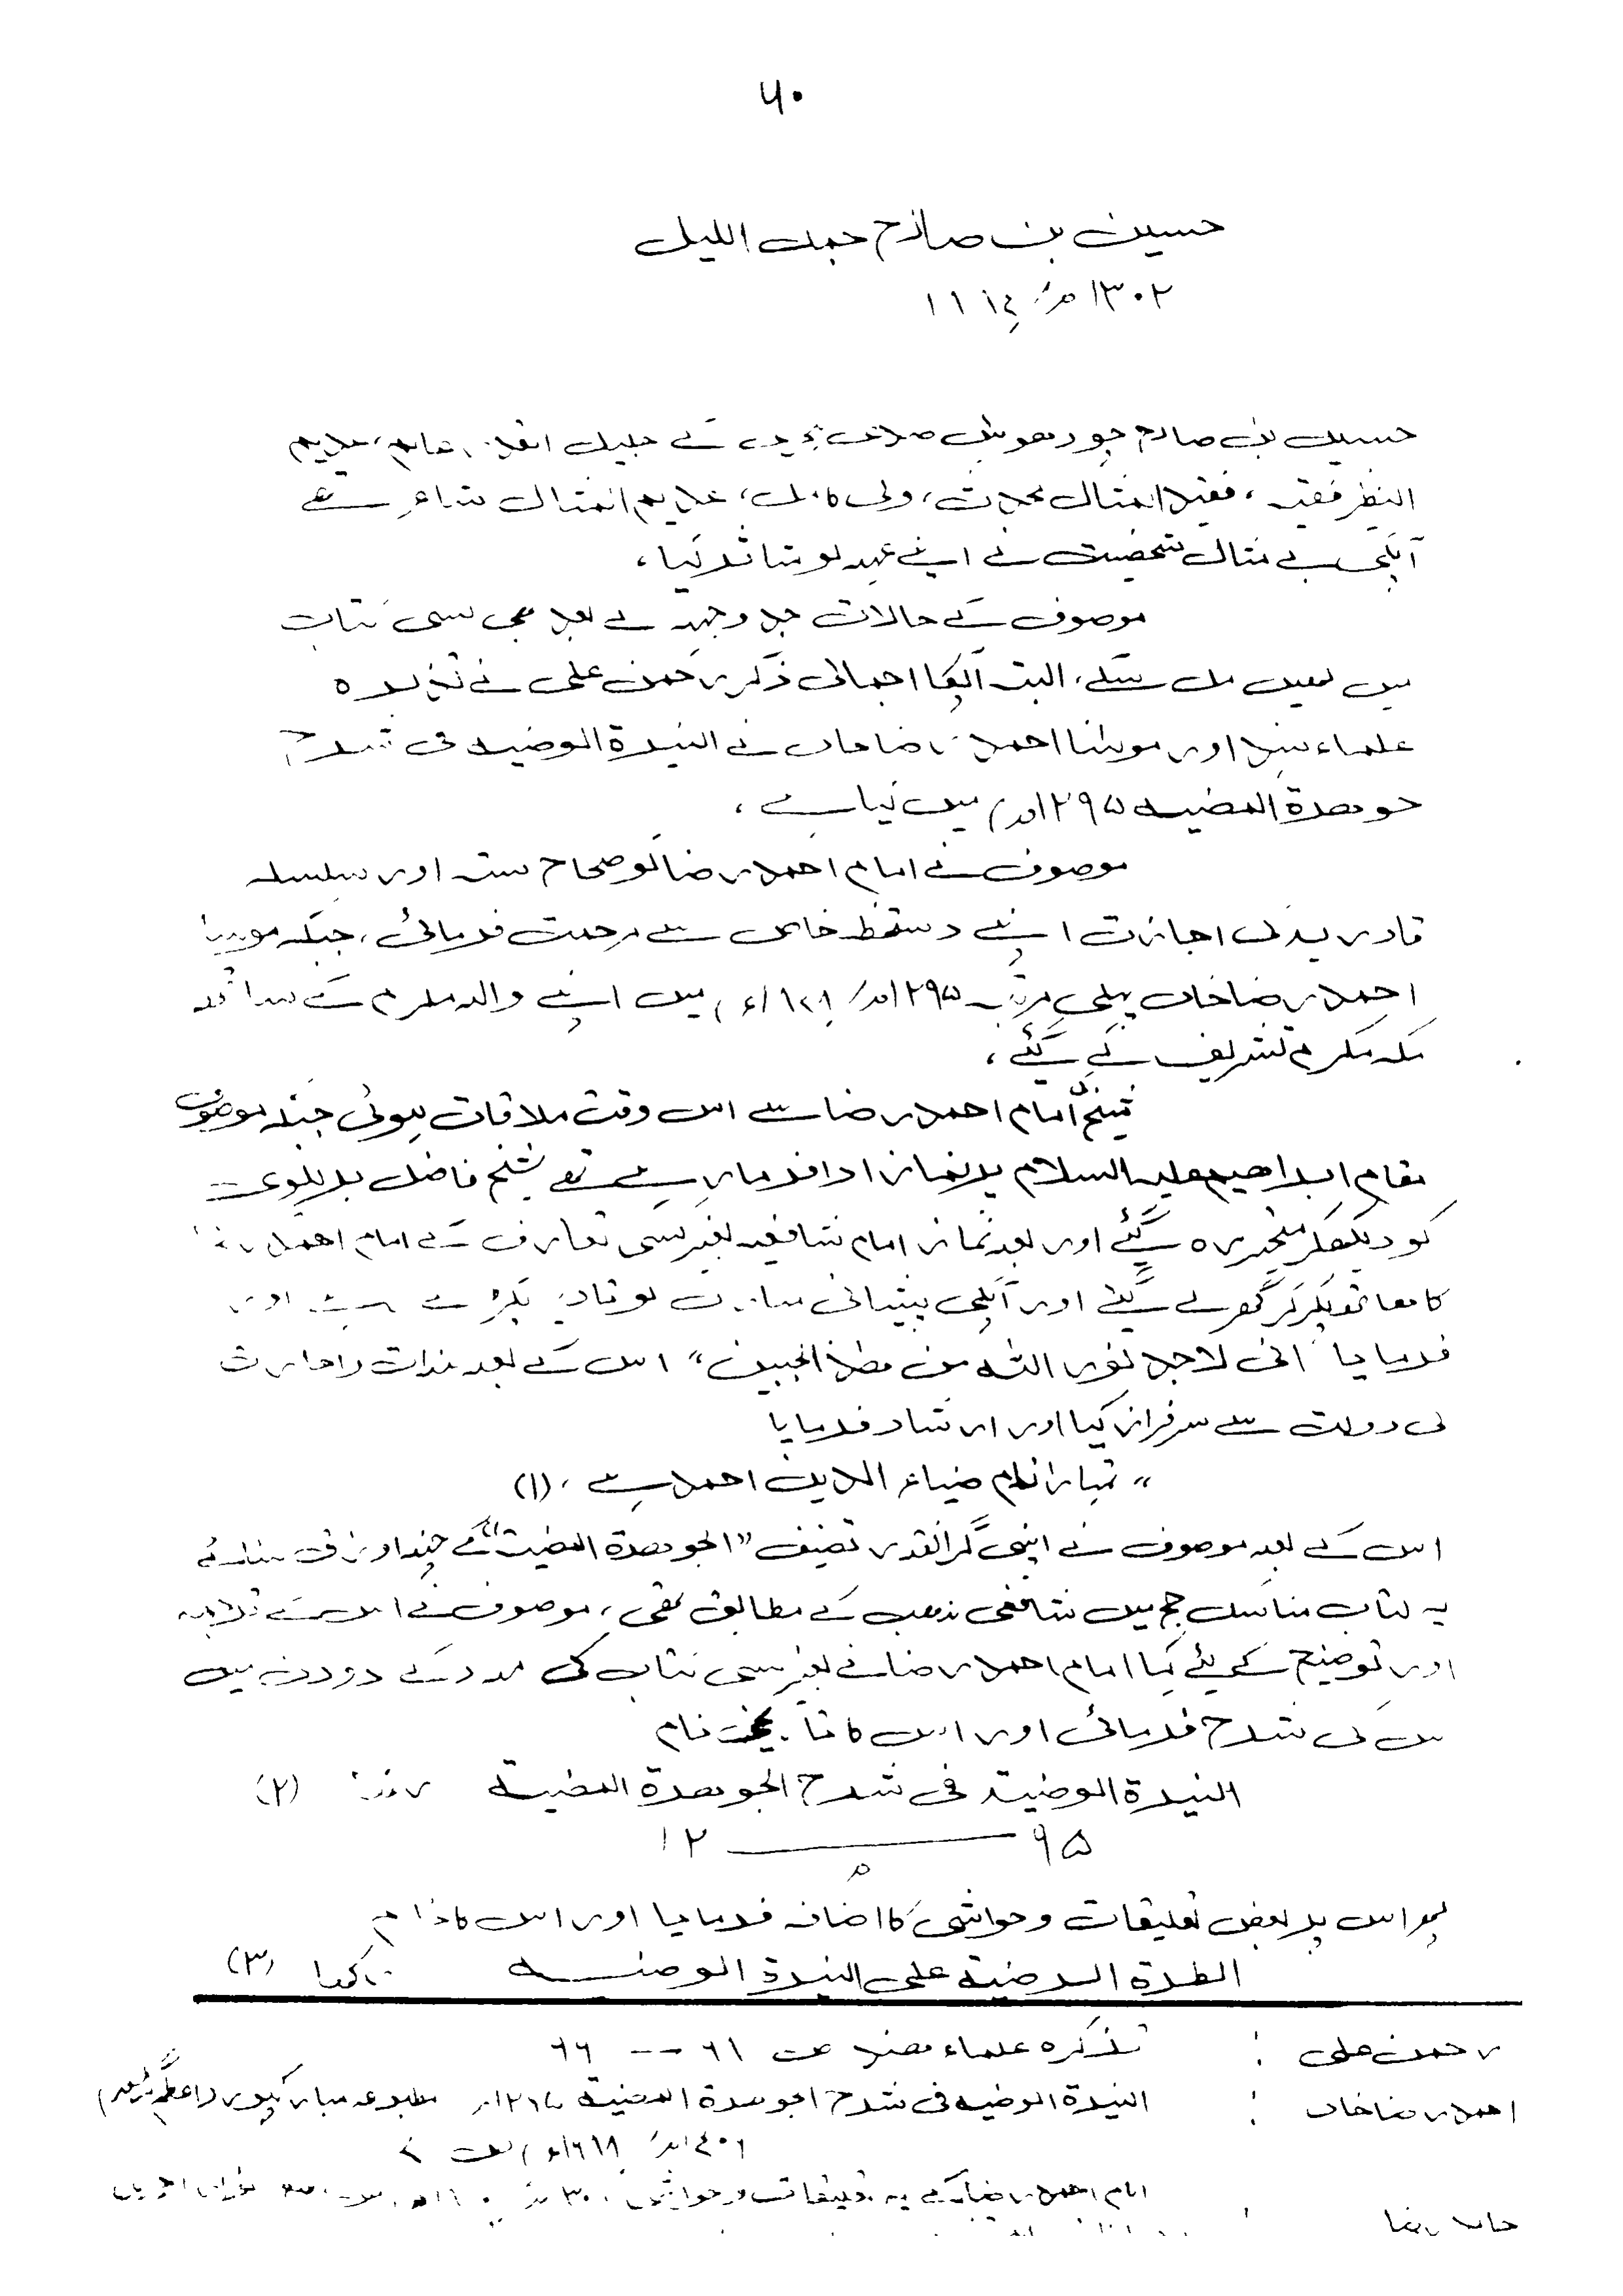 ۶۰
حسین بن صالح جمل اللیل
۱۳۰۲ھ/
حسین بن صالح جو چودھویں صدی ہجری کے جلیل القدر عالم، عدیم
النظیر فقیہ، فقید المثال محدث، ولی کامل، عدیم المثال شاعر تھے
آپکی بے مثال شخصیت نے اپنے عہد کو متاثر کیا،
موصوف کے حالات جد وجہد کے بعد بھی کسی کتاب
میں نہیں مل سکے، البتہ آپکا اجمالی ذکر رحمن علی نے تذکرہ
علماء ہند اور مولینا احمد رضا خاں نے النیرۃ الوضیہ فی شرح
جوھرۃ المضیہ ۱۲۹۵ھ میں کیا ہے،
موصوف نے امام احمد رضا کو صحاح ستہ اور سلسلہ
قادریہ کی اجازت اپنے دستخط خاص سے مرحمت فرمائی، جبکہ مولینا
احمد رضا خاں پہلی مرتبہ ۱۲۹۵ھ/ میں اپنے والد مکرم کے ساتھ
مکہ مکرم تشریف لے گئے،
شیخ کی امام احمد رضا سے اس وقت ملاقات ہوئی جبکہ موصوف
مقام ابراھیم علیہ السلام پر نماز ادا فرما رہے تھے شیخ فاضل بریلوی
کو دیکھکر متحیر رہ گئے اور بعد نماز امام شافعیہ بغیر کسی تعارف کے امام احمد رضا
کا ہاتھ پکڑ کر گھر لے گئے اور آپکی پیشانی مبارک کو تادیر پکڑے رہے اور
فرمایا "انی لاجد نور اللہ من ھذا الجبین" اس کے بعد سندات و اجازت
کی دولت سے سرفراز کیا اور ارشاد فرمایا
" تمہارا نام ضیاء الدین احمد ہے، (۱)
اس کے بعد موصوف نے اپنی گرانقدر تصنیف "الجوھرۃ المضیۃ" کے چند اوراق سنائے
یہ کتاب مناسک حج میں شافعی مذھب کے مطابق تھی، موصوف نے اس کے ترجمہ
اور توضیح کے لئے کہا امام احمد رضا نے بغیر کسی کتاب کی مدد کے دو دن میں
اس کی شرح فرمائی اور اس کا تاریخی نام
النیرۃ الوضیۃ فی شرح الجوھرۃ المضیۃ رکھا (۲)
۱۲ ـــــ ۹۵
ھ
پھر اس پر بعض تعلیقات و حواشی کا اضافہ فرمایا اور اس کا نام
الطرۃ الرضیۃ علی النیرۃ الوضیہ رکھا (۳)
رحمن علی : تذکرہ علماء ھند ص
احمد رضا خاں : النیرۃ الوضیہ فی شرح الجوھرۃ المضیۃ مطبوعہ مبارکپور (اعظم گڑھ)
امام احمد رضا کے یہ تعلیقات و حواشی
حامد رضا :